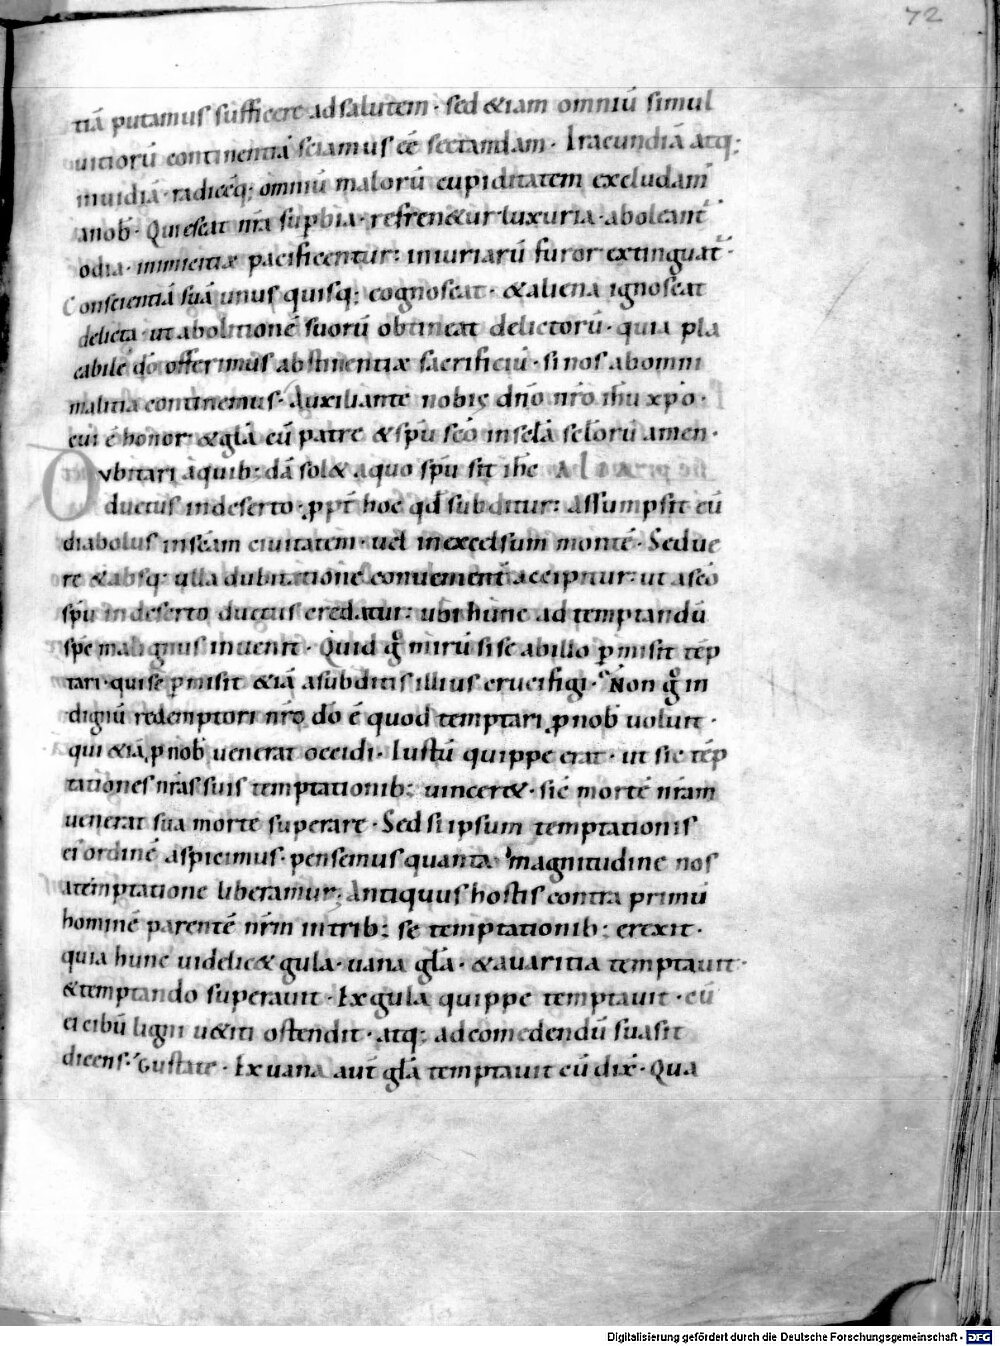 72
tiā putamus sufficere ad salutem · sed &iam omniū simul
uitiorū continentiā sciamus eē sectandam · Iracundiā atq;
inuidiā · radicēq; omniū malorū cupiditatem excludam᷑
a nob̄ · Quiescat nr̄a supbia · refren&ur luxuria · aboleant᷑
odia · inimicitiæ pacificentur: iniuriarū furor extinguat᷑ ·
Conscientiā suā unus quisq; cognoscat · &aliena ignoscat
delicta · ut abolitionē suorū obtineat delictorū · quia pla
cabilē dō offerimus abstinentiæ sacrificiū · si nos ab omni
malitia continemus · Auxiliante nobis dn̄o nr̄o ih̄u xp̄o ·
cui ē honor &gla̅ cū patre &sp̄u sc̄o in sc̄la sc̄lorū amen ·
Dvbitari a quib; dā sol& a quo sp̄u sit ih̄c Alia
ductus in deserto · ꝓpt̄ hoc qd̄ subditur: Assumpsit eū
diabolus in sc̄am ciuitatem · uel in excelsum montē · Sed ue
re &absq; ulla dubitatione conuenient᷑ accipitur: ut a sc̄o
sp̄u in deserto ductus credatur: ubi hunc ad temptandū
sp̄c malignus inuenit · Quid g̊ mirū si se ab illo ꝑmisit tēp
tari · qui se ꝑmisit &iā a subditis illius crucifigi · Non g̊ in
dignū redemptori nr̄o dō ē quod temptari ꝓ nob̄ uoluit ·
qui &iā ꝓ nob̄ uenerat occidi · Iustū quippe erat · ut sic tēp
tationes nr̄as suis temptationib; uincer& · sic mortē nr̄am
uenerat sua morte superare · Sed si ipsum temptationis
ei ordinē aspicimus · pensemus quanta magnitudine nos
a temptatione liberamur; Antiquus hostis contra primū
hominē parentē nr̄m in trib; se temptationib; erexit ·
quia hunc uidelic& gula · uana gla̅ · &auaritia temptauit ·
&temptando superauit · Ex gula quippe temptauit · cū
ei cibū ligni u&iti ostendit · atq; ad comedendū suasit
dicens · Gustate · Ex uana aut̄ gla̅ temptauit cū dix̄ · Qua
Digitalisierung gefördert durch die Deutsche Forschungsgemeinschaft - DFG